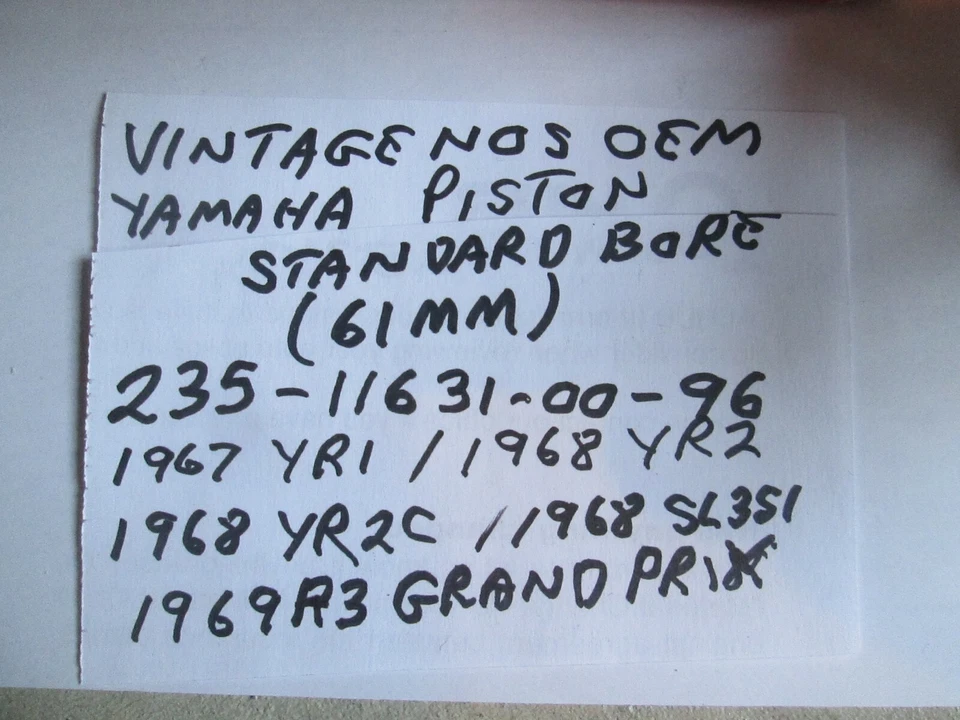 VINTAGE NOS OEM
YAMAHA PISTON
STANDARD BORE
(61MM)
235-11631-00-96
1967 YR1 / 1968 YR2
1968 YR2C / 1968 SL351
1969 R3 GRAND PRIX